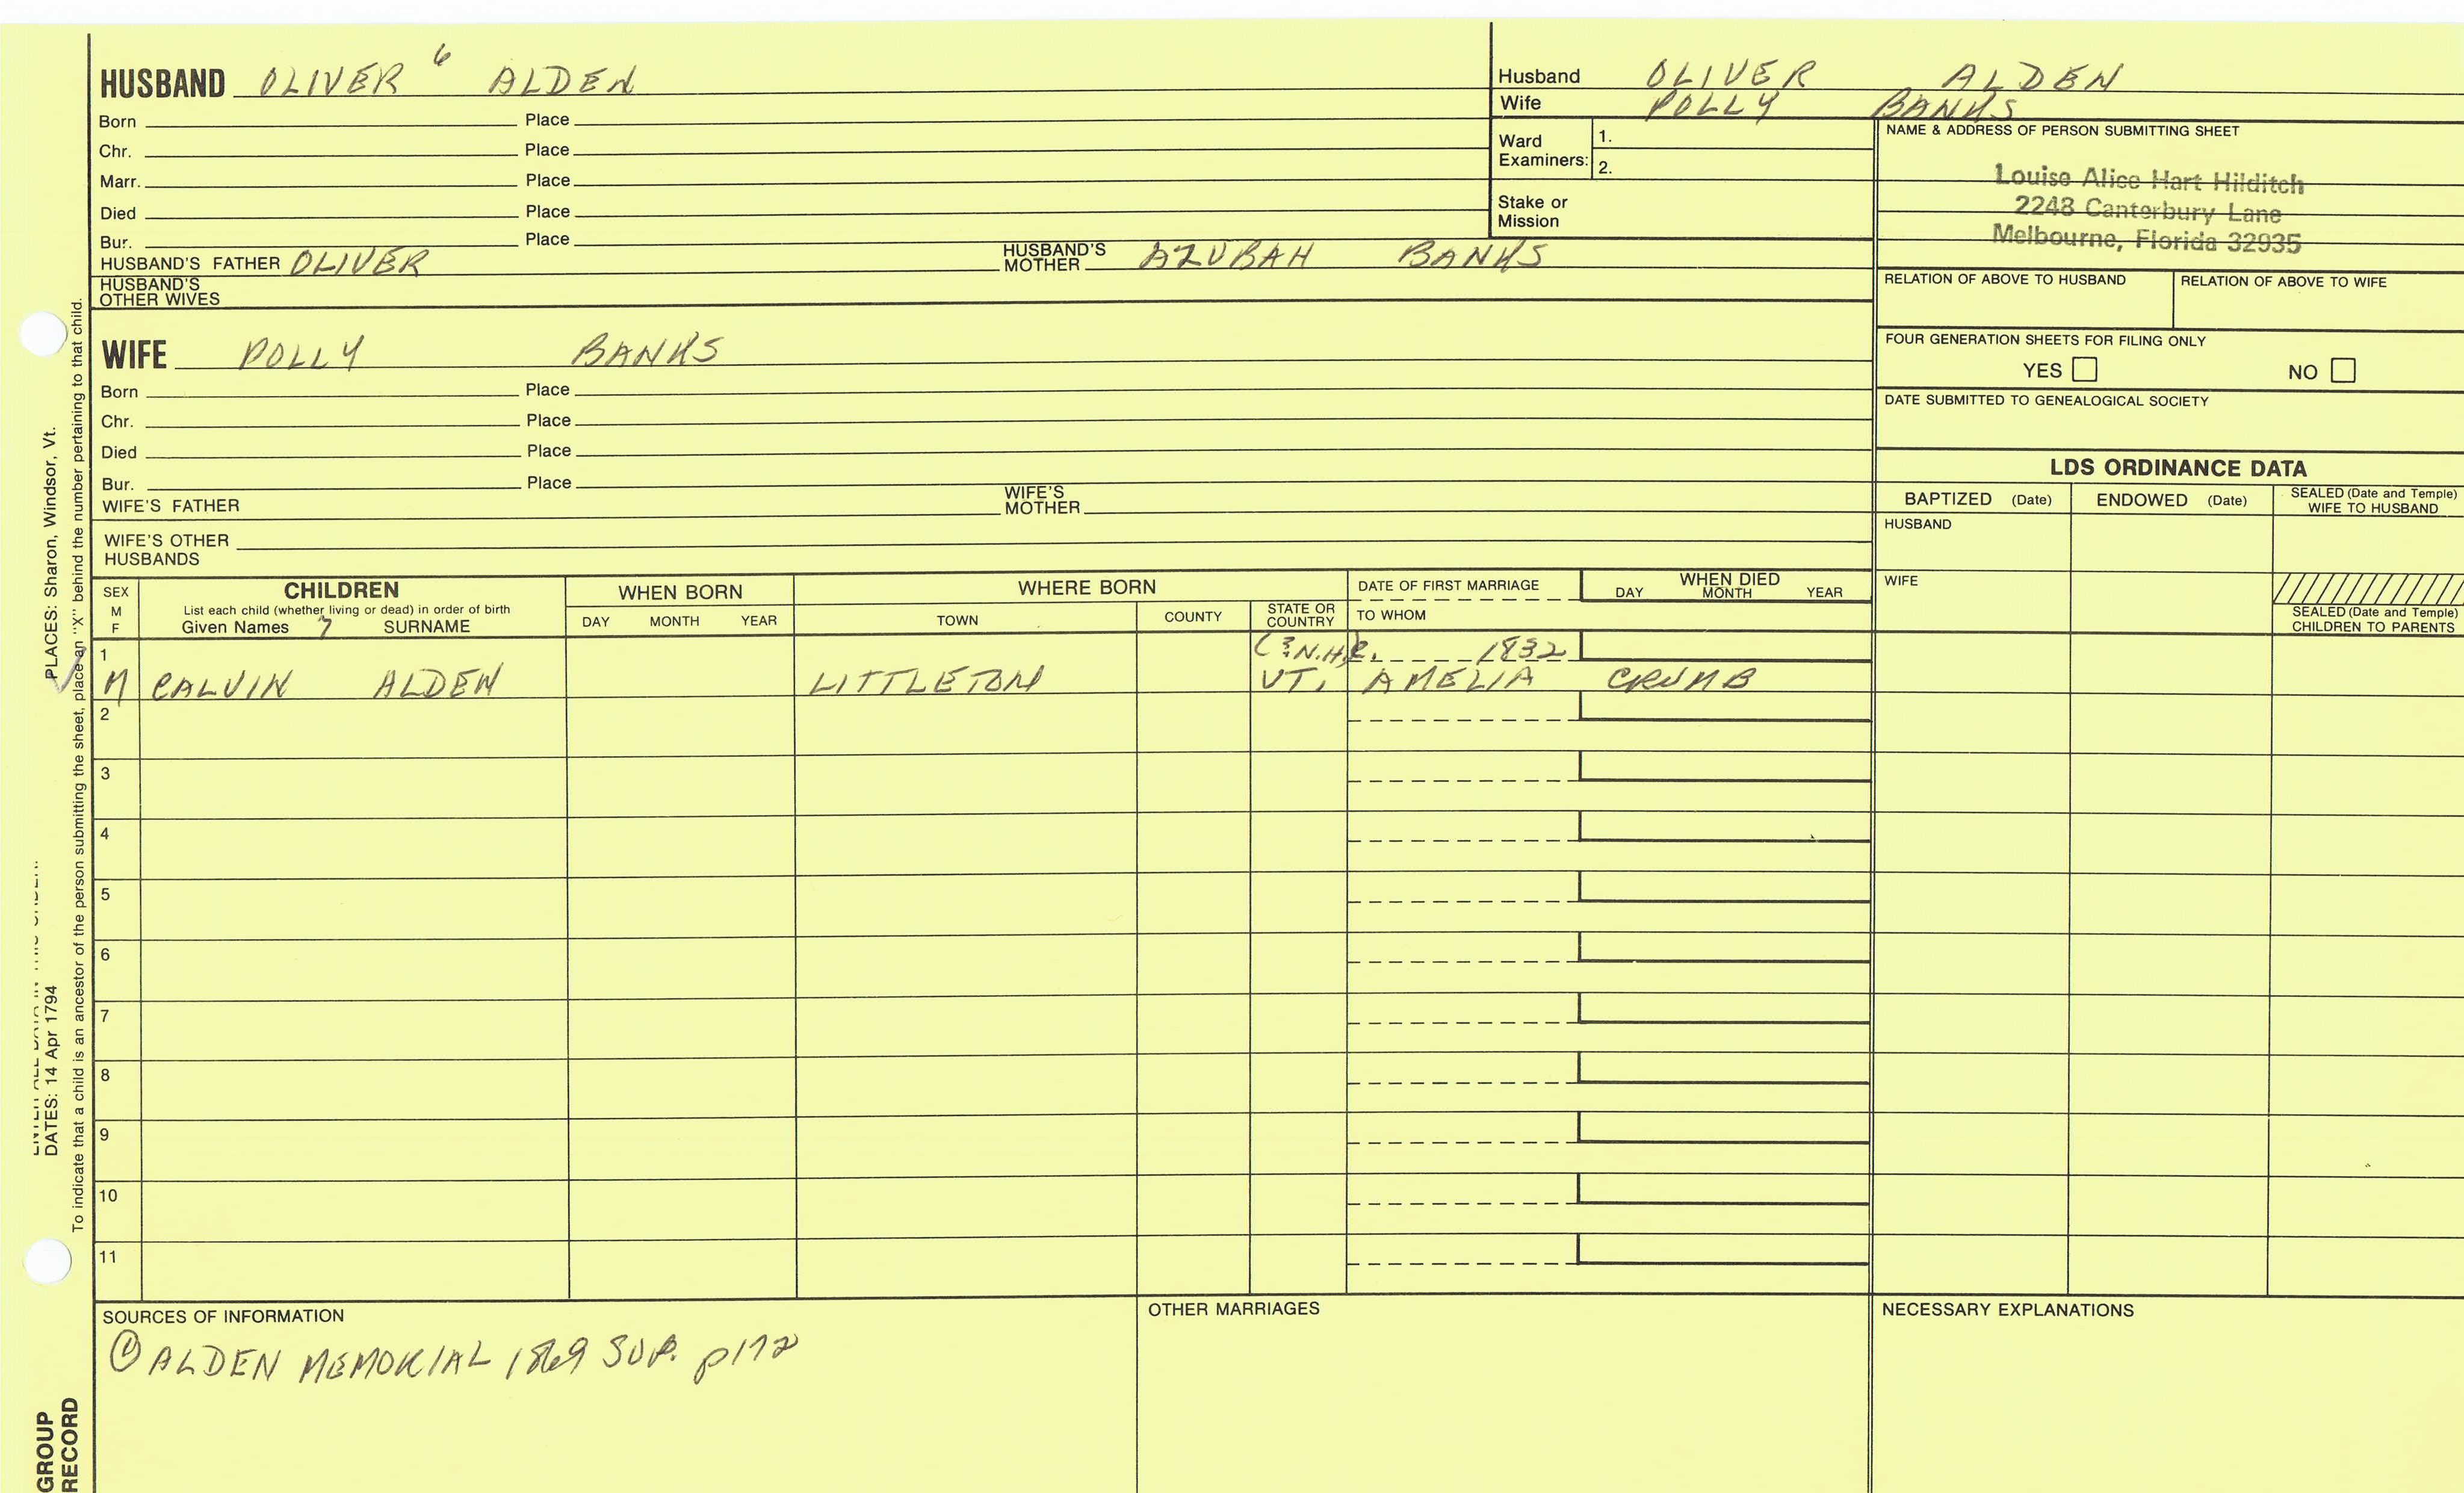 HUSBAND OLIVER 6 ALDEN
Born Place
Chr. Place
Marr. Place
Died Place
Bur. Place
HUSBAND'S FATHER OLIVER HUSBAND'S MOTHER AZUBAH BANKS
HUSBAND'S OTHER WIVES
Husband OLIVER ALDEN
Wife POLLY BANKS
Ward Examiners: 1.
2.
Stake or Mission
NAME & ADDRESS OF PERSON SUBMITTING SHEET
Louise Alice Hart Hilditch
2248 Canterbury Lane
Melbourne, Florida 32935
RELATION OF ABOVE TO HUSBAND RELATION OF ABOVE TO WIFE
FOUR GENERATION SHEETS FOR FILING ONLY
YES NO
DATE SUBMITTED TO GENEALOGICAL SOCIETY
WIFE POLLY BANKS
Born Place
Chr. Place
Died Place
Bur. Place
WIFE'S FATHER WIFE'S MOTHER
WIFE'S OTHER HUSBANDS
LDS ORDINANCE DATA
BAPTIZED (Date) ENDOWED (Date) SEALED (Date and Temple) WIFE TO HUSBAND
HUSBAND
WIFE
SEALED (Date and Temple) CHILDREN TO PARENTS
SEX M F
CHILDREN
List each child (whether living or dead) in order of birth
Given Names 7 SURNAME
WHEN BORN
DAY MONTH YEAR
WHERE BORN
TOWN COUNTY STATE OR COUNTRY
DATE OF FIRST MARRIAGE
TO WHOM
WHEN DIED
DAY MONTH YEAR
1 (?N.H.) 1832
M CALVIN ALDEN LITTLETON VT. AMELIA CRUMB
2
3
4
5
6
7
8
9
10
11
SOURCES OF INFORMATION
① ALDEN MEMORIAL 1869 SUP. p172
OTHER MARRIAGES
NECESSARY EXPLANATIONS
PLACES: Sharon, Windsor, Vt.
DATES: 14 Apr 1794
To indicate that a child is an ancestor of the person submitting the sheet, place an "X" behind the number pertaining to that child.
GROUP
RECORD